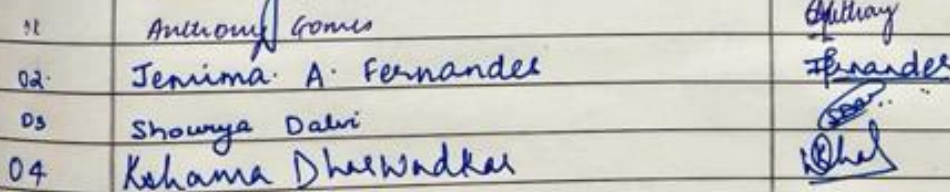 01 Anthony Gomes Anthony
02. Jemima. A. Fernandes Fernandes
03 Shourya Dalvi
04 Kshama Dharwadkar